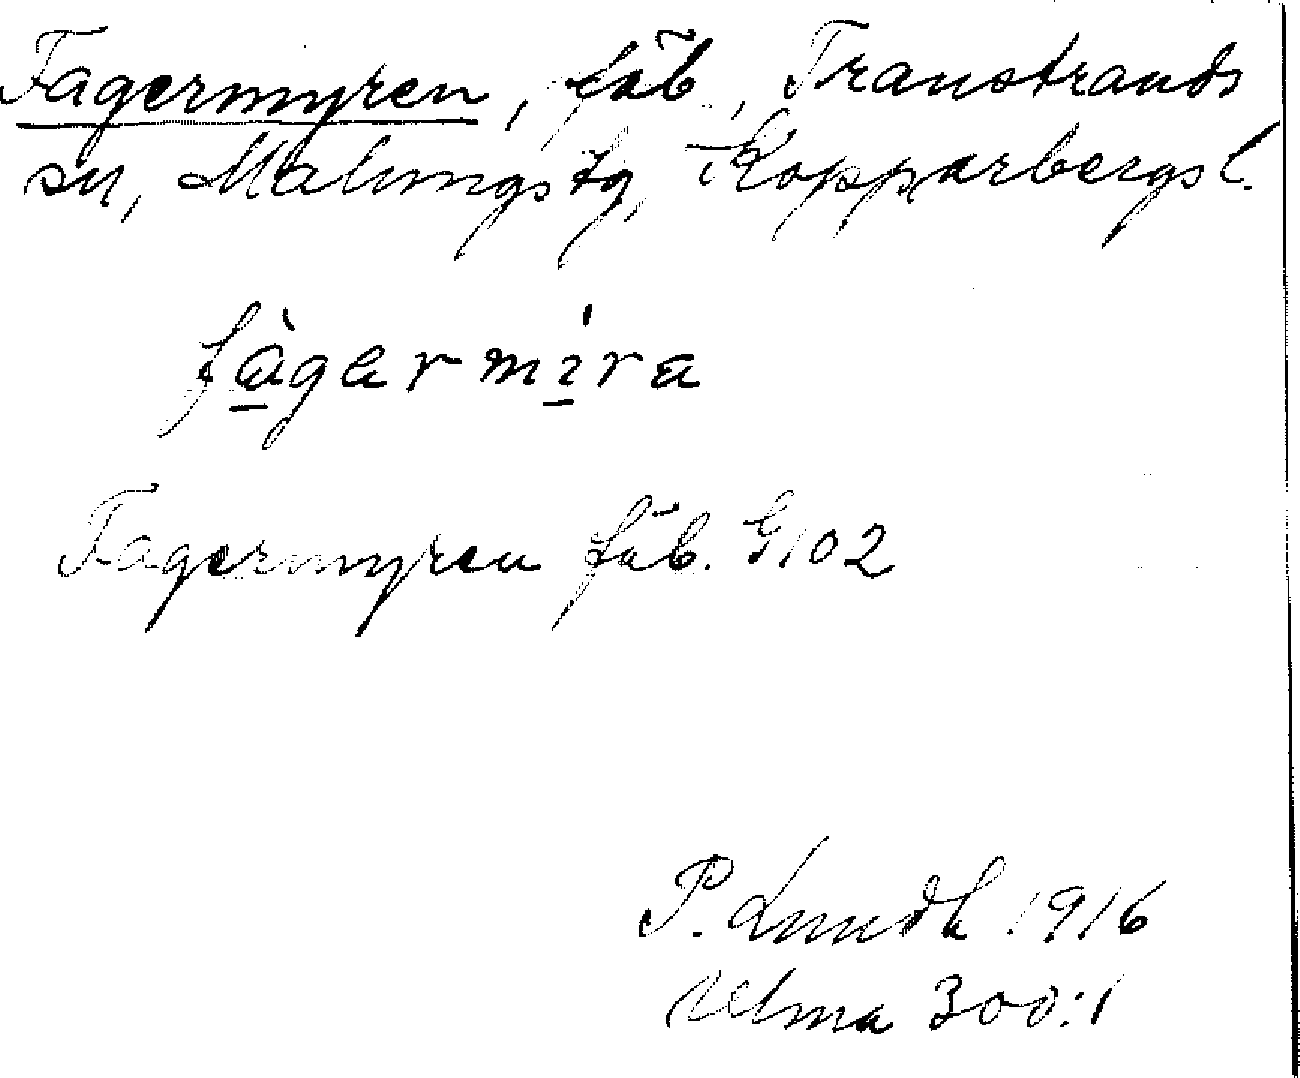 Fagermyren, fäb., Transtrands
sn, Malungs tg, Kopparbergs l.
fàgermíra
Fagermyren fäb. G102
P. Lundh 1916
Ulma 300:1